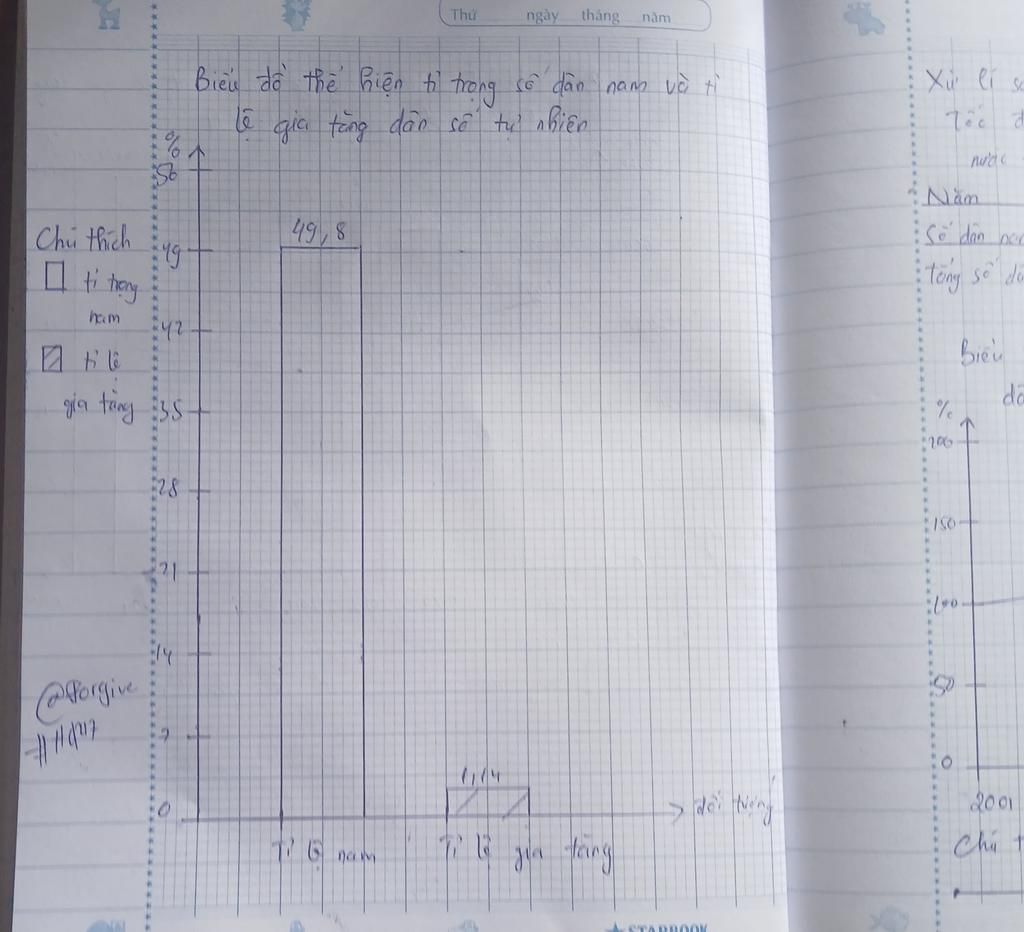 Thứ ngày tháng năm
Biểu đồ thể hiện tỉ trọng số dân nam và tỉ
lệ gia tăng dân số tự nhiên
%
56
49
42
35
28
21
14
7
0
49,8
1,14
đối tượng
Tỉ lệ nam
Tỉ lệ gia tăng
Chú thích
tỉ trọng
nam
tỉ lệ
gia tăng
@Forgive
STARBOOK
Xử lí
Tốc
nước
Năm
Số dân
tổng số
Biểu
%
200
150
100
50
0
2001
Chú